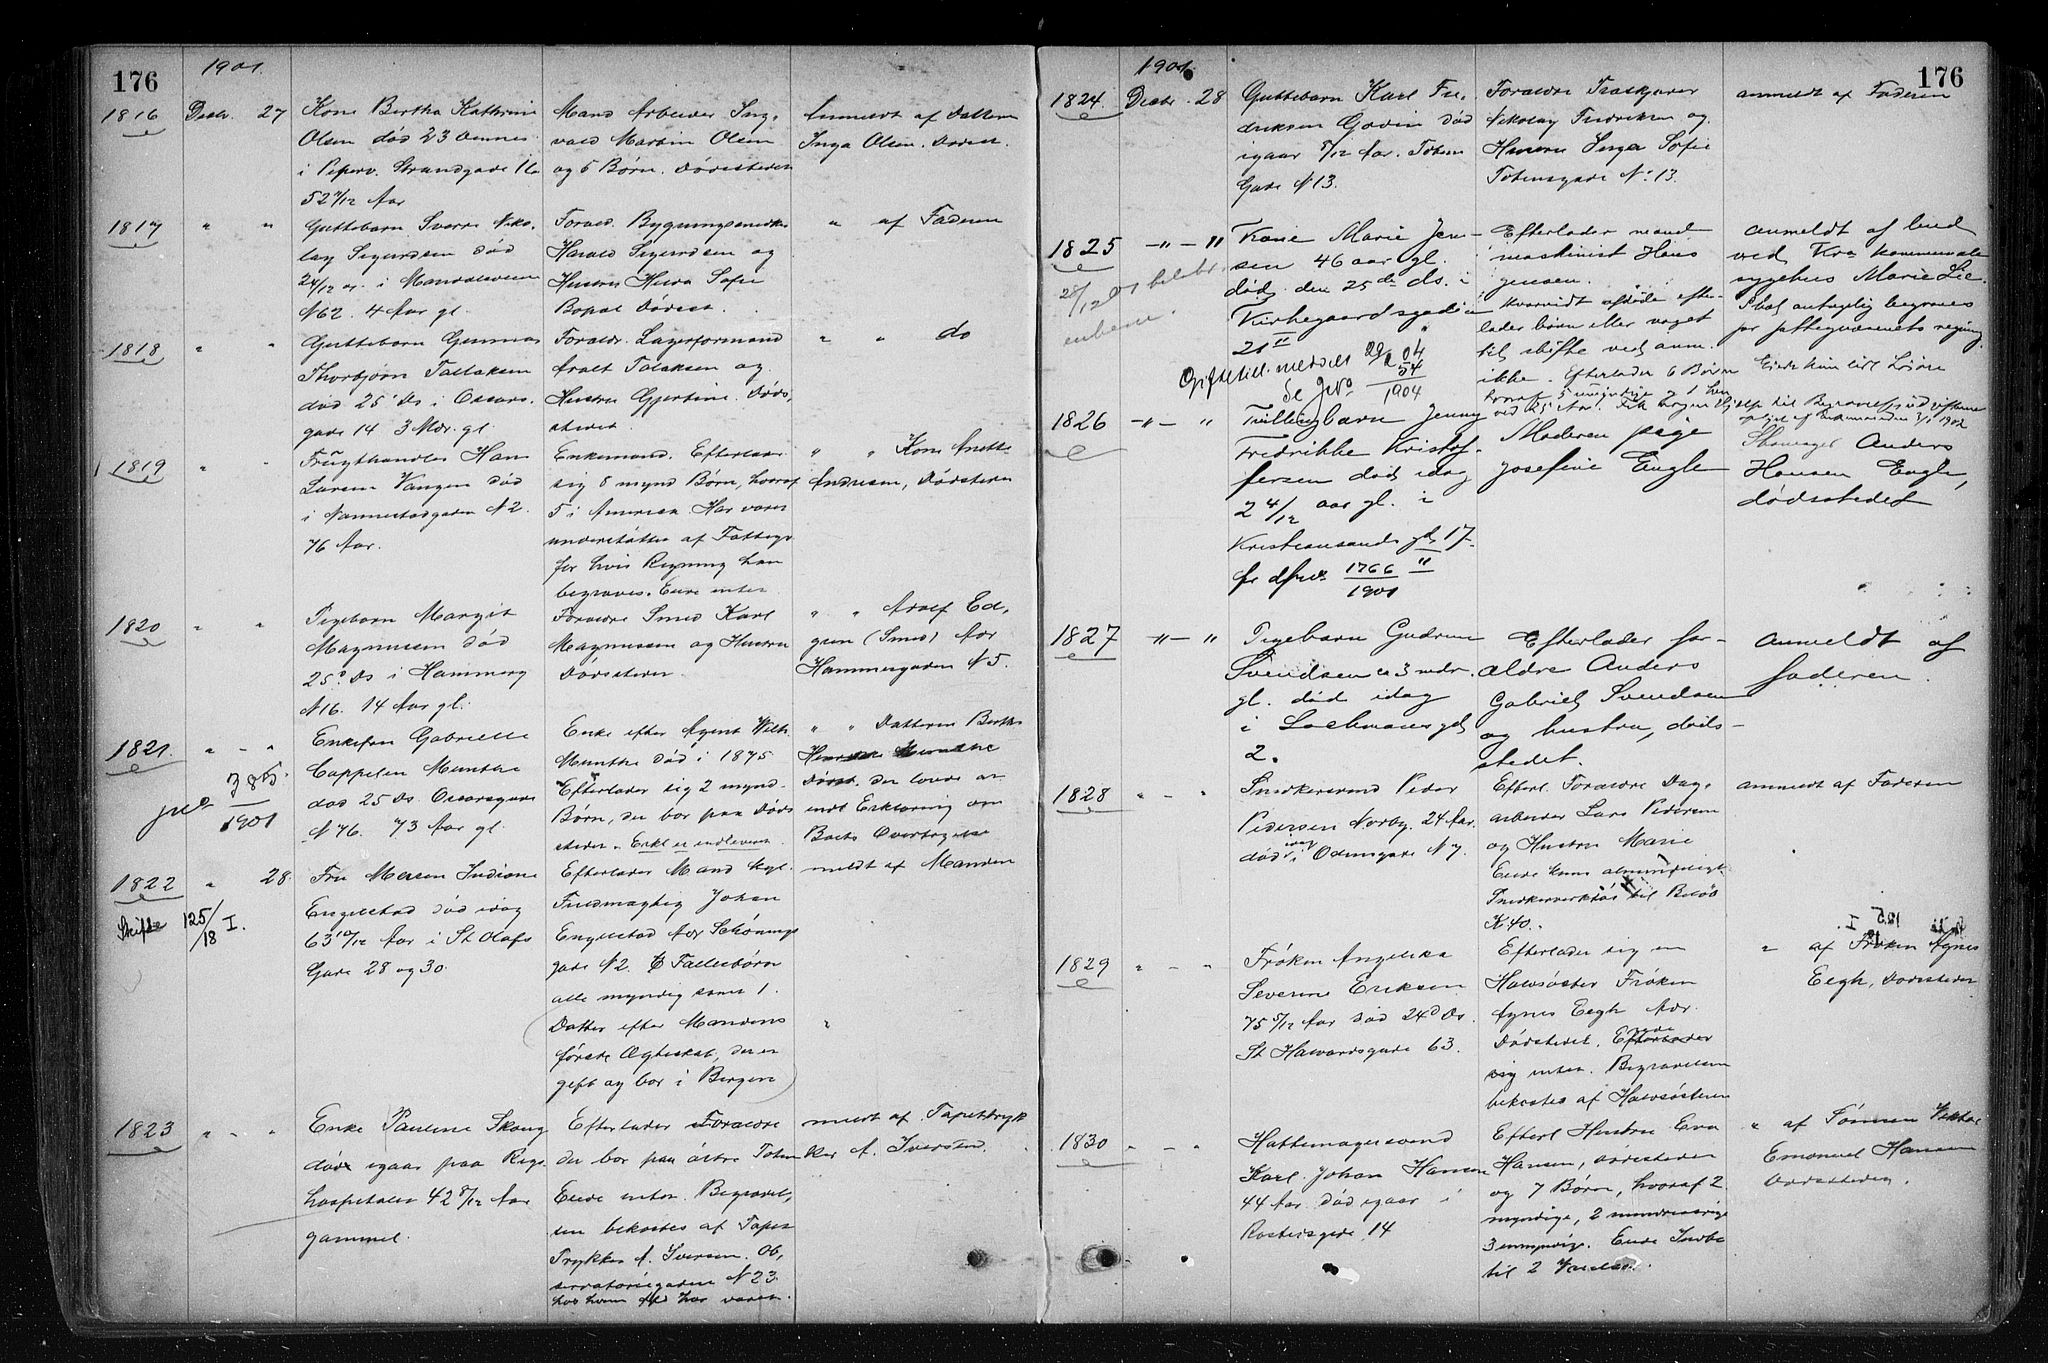 176
1901.
1816
Decbr. 27
Kone Bertha Kathrine
Olsen død 23 dennes
i Piperv. Strandgade 16
52 Aar
Mand Arbeider Ing-
vald Martin Olsen
og 5 Børn. Dødsstedet
Anmeldt af Datteren
Inga Olsen. Dødsst.
1817
" "
Guttebarn Sverre Niko-
lay Sigurdsen død
24/12 i Mandalsveien
N 62. 4 Aar gl.
Foræld. Bygningssnedker
Harald Sigurdsen og
Hustru Sofie
Bopæl Dødsst.
" af Faderen
1818
" "
Guttebarn Gunnar
Thorbjørn Tallaksen
død 25 Ds i Oscars-
gade 14 3 Mdr. gl.
Foræld. Lagerformand
Tallaksen og
Hustru Gjertine. Døds-
stedet
" " do
1819
" "
Frugthandler Hans
Larsen Vangen død
i Nannestadgaden N 2.
76 Aar.
Enkemand. Efterlader
sig 8 mynd Børn, hvoraf
5 i Amerika. Har været
understøttet af Fattigv
for hvis Regning han
begraves. Eiede intet
" " Kone Anette
Andresen, Dødsstedet
1820
" "
Pigebarn Margit
Magnussen død
25 Ds i Hammerg
N 16. 14 Aar gl.
Forældre Smed Karl
Magnussen og Hustru
Dødsstedet.
" " Adolf
(Smed) Adr
Hammergaden N 5.
1821.
" - "
385
1901
Enkefru Gabrielle
Cappelen Munthe
død 25 Ds. Oscarsgade
N 76. 73 Aar gl.
Enke efter Agent Wilh.
Munthe død i 1875
Efterlader sig 2 mynd.
Børn, der bor paa Døds
stedet. Erkl er indleveret
" " Datteren
Munthe
Dødsst. der lovede at
indl Erklæring om
Boets Overtagelse
1822
" 28
Skifte 125/18 I.
Fru Maren Indiane
Engelstad død idag
63 10/12 Aar i St Olafs
Gade 28 og 30
Efterlader Mand Kgl.
Fuldmægtig Johan
Engelstad Adr Schønings
gade N 2. Fællesbørn
alle myndig samt 1
Datter efter Mandens
første Ægteskab, der er
gift og bor i Bergen
meldt af Manden
"
1823
" - "
Enke Pauline Skoug
død igaar paa Rigs
hospitalet 42 8/12 Aar
gammel.
Efterlader Forældre
der bor paa østre Toten
Eiede intet. Begravel-
sen bekostes af Tapet
Trykker A. Iversen. Ob-
servatoriegaden N 23
hos hvem Afd har været.
meldt af. Tapettryk
ker A. Iversen.
176
1901.
1824
Decbr. 28
Guttebarn Karl Fre-
driksen død
igaar 5/12 Aar. Toten
Gade N 13.
Forældre
Nikolay Fredriksen og
Hustru Inga Sofie
Totensgade No 13.
anmeldt af Faderen
1825
- " - "
28/12 01
Kone Marie Jen-
sen 46 aar gl.
død den 25de ds. i
Kirkegaardsgaden
21
29/2 04
54
1904
Efterlader mand
maskinist Hans
Jensen.
Hvorvidt afdøde efter-
lader børn eller noget
til skifte ved anm.
ikke. Efterlader 6 Børn
hvoraf 5 umyndige og 1
anmeldt af bud
ved Kra kommunale
sygehus Marie Lie.
Skal antagelig begraves
for fattigvæsenets regning.
1826
- " - "
Tvillingbarn Jenny
Fredrikke Kristof-
fersen død idag
2 4/12 aar gl. i
Kristiansands gd 17
1766
1901
Moderen pige
Josefine Engh
Skomager Anders
Hansen Engh,
dødsstedet
1827
" - "
Pigebarn Gudrun
Svendsen ca 3 mdr.
gl. død idag
i Lochmans gd
2.
Efterlader for-
ældre Anders
Gabriel Svendsen
og hustru, døds-
stedet.
anmeldt af
faderen.
1828
" - "
Snedkersvend Peder
Pedersen Norby. 24 Aar.
død idag i Odinsgade N 7.
Efterl. Forældre Dag-
arbeider Lars Pedersen
og Hustru Marie
Eiede kuns almindeligt
Snedkerverktøi til Beløb
K 40.
anmeldt af Faderen
1829
" - "
Frøken Angelika
Severine Eriksen
75 5/12 Aar død 24d Ds.
St Halvardsgade 63.
Efterlader sig en
Halvsøster Frøken
Agnes Eegh Adr.
Dødsstedet. Efterlader
sig intet. Begravelsen
bekostes af Halvsøsteren
" af Frøken Agnes
Eegh, Dødsstedet
1830
" - "
Hattemagersvend
Karl Johan Hansen
44 Aar død igaar i
gade 14
Efterl Hustru Eva
Hansen, dødsstedet
og 7 Børn, hvoraf 2
myndige, 2 mindreaarige
3 umyndig. Eiede Indbo
til 2 Værelser.
" af Sønnen Viktor
Emanuel Hansen
dødsstedet.